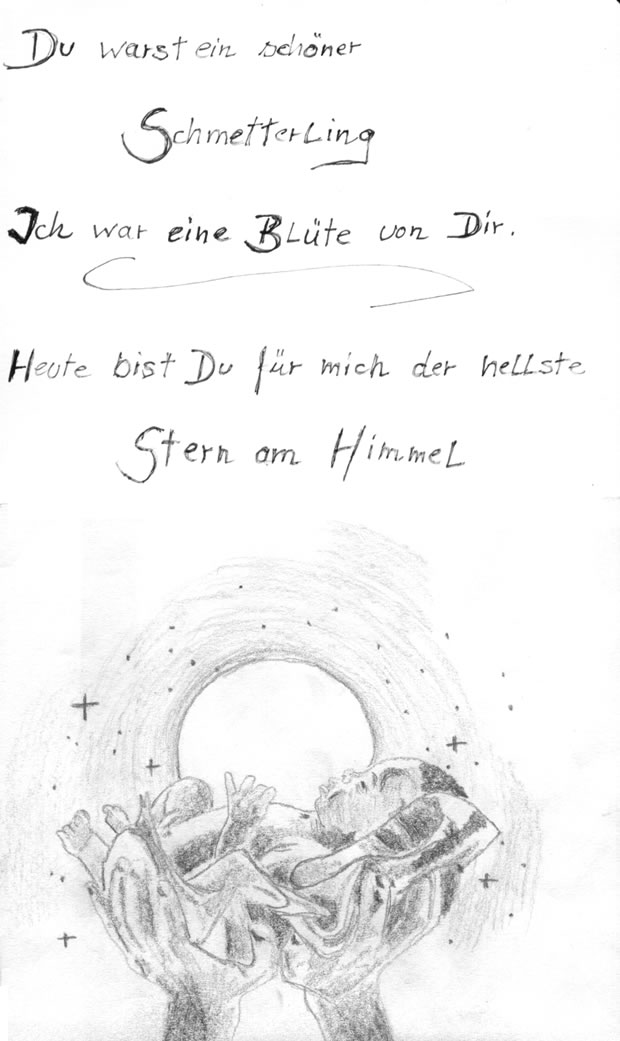 Du warst ein schöner
Schmetterling
Ich war eine Blüte von Dir.
Heute bist Du für mich der hellste
Stern am Himmel